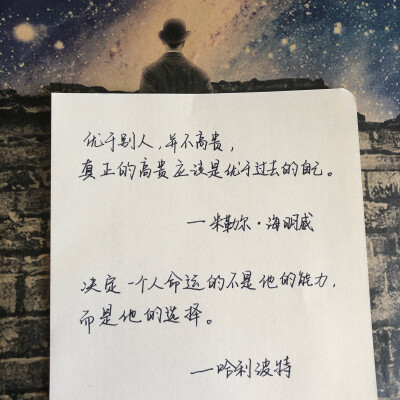 优于别人,并不高贵,
真正的高贵应该是优于过去的自己。
—米勒尔·海明威
决定一个人命运的不是他的能力,
而是他的选择。
—哈利波特